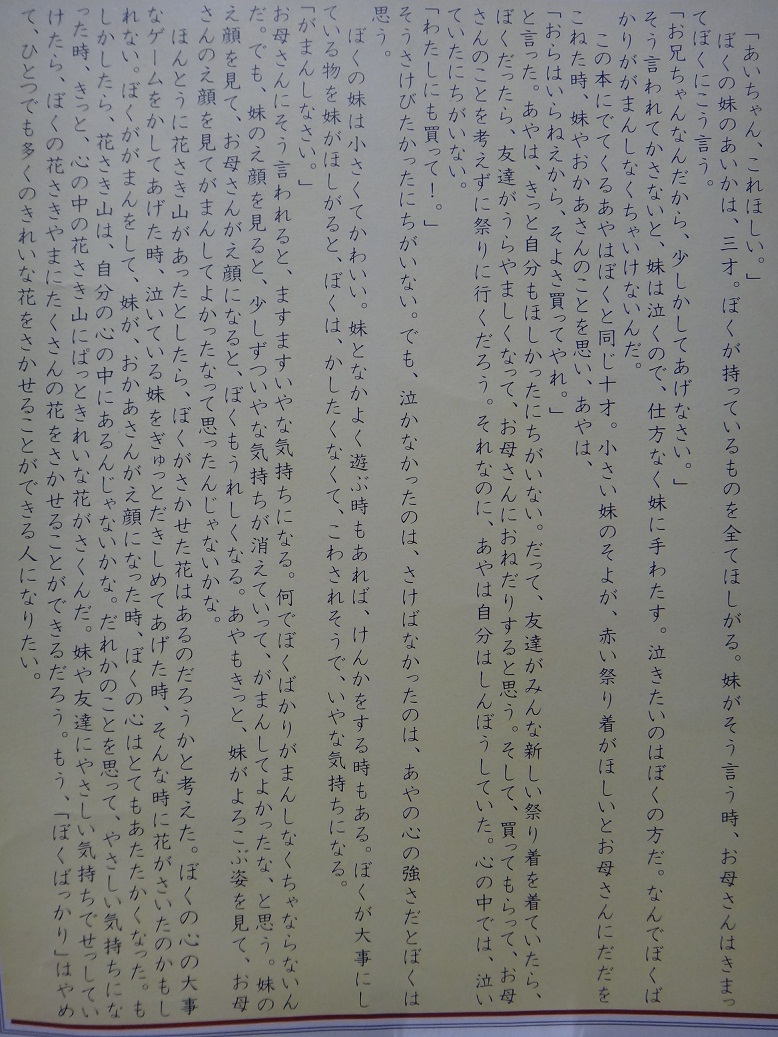 「あいちゃん、これほしい。」
ぼくの妹のあいかは、三才。ぼくが持っているものを全てほしがる。妹がそう言う時、お母さんはきまっ
てぼくにこう言う。
「お兄ちゃんなんだから、少しかしてあげなさい。」
そう言われてかさないと、妹は泣くので、仕方なく妹に手わたす。泣きたいのはぼくの方だ。なんでぼくば
かりががまんしなくちゃいけないんだ。
この本にでてくるあやはぼくと同じ十才。小さい妹のそよが、赤い祭り着がほしいとお母さんにだだを
こねた時、妹やおかあさんのことを思い、あやは、
「おらはいらねえから、そよさ買ってやれ。」
と言った。あやは、きっと自分もほしかったにちがいない。だって、友達がみんな新しい祭り着を着ていたら、
ぼくだったら、友達がうらやましくなって、お母さんにおねだりすると思う。そして、買ってもらって、お母
さんのことを考えずに祭りに行くだろう。それなのに、あやは自分はしんぼうしていた。心の中では、泣い
ていたにちがいない。
「わたしにも買って！。」
そうさけびたかったにちがいない。でも、泣かなかったのは、さけばなかったのは、あやの心の強さだとぼくは
思う。
ぼくの妹は小さくてかわいい。妹となかよく遊ぶ時もあれば、けんかをする時もある。ぼくが大事にし
ている物を妹がほしがると、ぼくは、かしたくなくて、こわされそうで、いやな気持ちになる。
「がまんしなさい。」
お母さんにそう言われると、ますますいやな気持ちになる。何でぼくばかりがまんしなくちゃならないん
だ。でも、妹のえ顔を見ると、少しずついやな気持ちが消えていって、がまんしてよかったな、と思う。妹の
え顔を見て、お母さんがえ顔になると、ぼくもうれしくなる。あやもきっと、妹がよろこぶ姿を見て、お母
さんのえ顔を見てがまんしてよかったなって思ったんじゃないかな。
ほんとうに花さき山があったとしたら、ぼくがさかせた花はあるのだろうかと考えた。ぼくの心の大事
なゲームをかしてあげた時、泣いている妹をぎゅっとだきしめてあげた時、そんな時に花がさいたのかもし
れない。ぼくががまんをして、妹が、おかあさんがえ顔になった時、ぼくの心はとてもあたたかくなった。も
しかしたら、花さき山は、自分の心の中にあるんじゃないかな。だれかのことを思って、やさしい気持ちにな
った時、きっと、心の中の花さき山にぱっときれいな花がさくんだ。妹や友達にやさしい気持ちでせっしてい
けたら、ぼくの花さきやまにたくさんの花をさかせることができるだろう。もう、「ぼくばっかり」はやめ
て、ひとつでも多くのきれいな花をさかせることができる人になりたい。